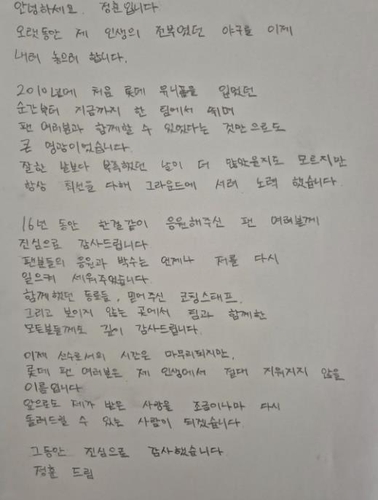 안녕하세요. 정훈입니다
오랫동안 제 인생의 전부였던 야구를 이제
내려 놓으려 합니다.
2010년에 처음 롯데 유니폼을 입었던
순간부터 지금까지 한 팀에서 뛰며
팬 여러분과 함께할 수 있었다는 것만으로도
큰 영광이었습니다.
잘한 날보다 부족했던 날이 더 많았을지도 모르지만
항상 최선을 다해 그라운드에 서려 노력 했습니다.
16년 동안 한결같이 응원해주신 팬 여러분께
진심으로 감사드립니다.
팬분들의 응원과 박수는 언제나 저를 다시
일으켜 세워주었습니다.
함께했던 동료들, 믿어주신 코칭스태프,
그리고 보이지 않는 곳에서 팀과 함께한
모든분들께도 깊이 감사드립니다.
이제 선수로써의 시간은 마무리되지만,
롯데 팬 여러분은 제 인생에서 절대 지워지지 않을
이름입니다
앞으로도 제가 받은 사랑을 조금이나마 다시
돌려드릴 수 있는 사람이 되겠습니다
그동안 진심으로 감사했습니다
정훈 드림